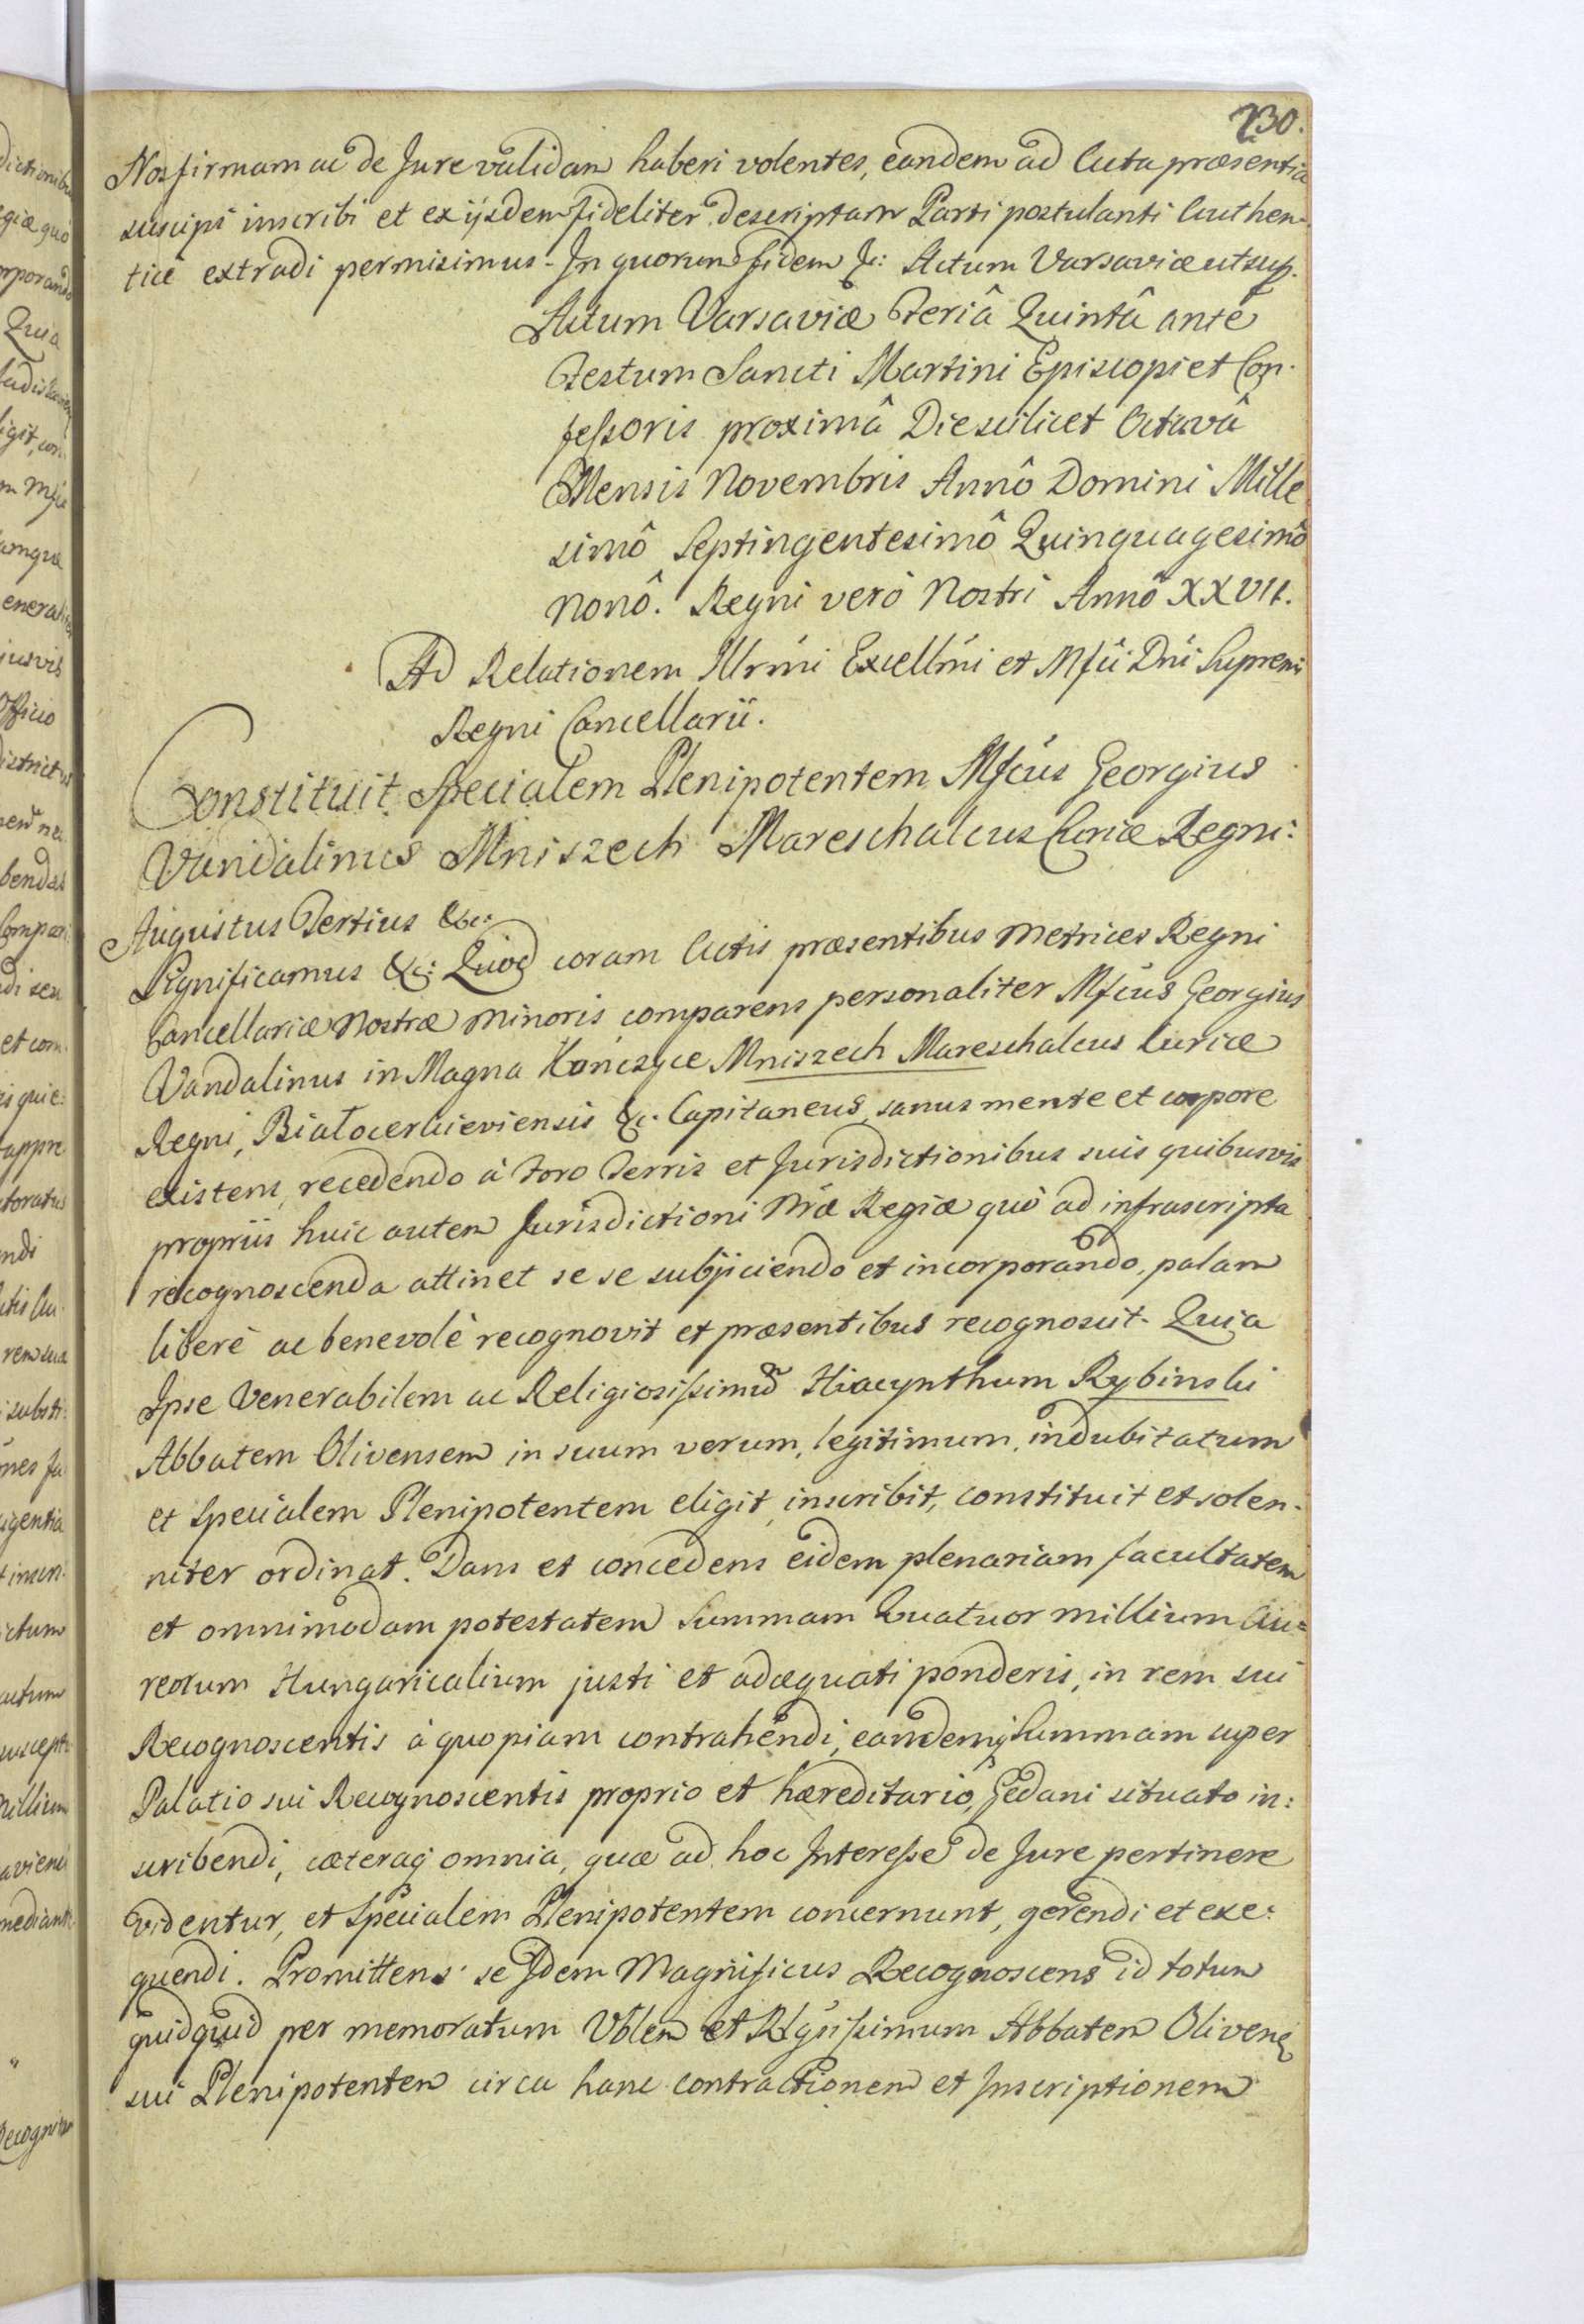 230.
Nos firmam ac de Jure validam haberi volentes, eandem ad Acta præsentia
suscipi inscribi et ex ijsdem fideliter descriptam Parti postulanti Authen-
ticè extradi permisimus. In quorum fidem &c: Actum Varsaviæ ut sup.
Actum Varsaviæ Feriâ Quintâ ante
Festum Sancti Martini Episcopi et Con-
feßoris proximâ Die scilicet Octavâ
Mensis Novembris Annô Domini Mille
simô Septingentesimô Quinquagesimô
nonô. Regni verò Nostri Annô XXVII.
Ad Relationem Illrmi Excellmi et Mfci Dni Supremi
Regni Cancellarii.
Constituit Specialem Plenipotentem Mfcus Georgius
Vandalinus Mniszech Mareschalcus Curiæ Regni:
Augustus Tertius &c:
Significamus &c: Quod coram Actis præsentibus Metrices Regni
Cancellariæ Nostræ Minoris comparens personaliter Mfcus Georgius
Vandalinus in Magna Kończyce Mniszech Mareschalcus Curiæ
Regni, Białocerkieviensis &c. Capitaneus, sanus mente et corpore
existens, recedendo à Foro Terris et Jurisdictionibus suis quibusvis
propriis huic autem Jurisdictioni Nræ Regiæ quò ad infrascripta
recognoscenda attinet se se subjiciendo et incorporando, palam
liberè ac benevolè recognovit et præsentibus recognoscit. Quia
Ipse Venerabilem ac Religiosißimũ Hiacynthum Rybinski
Abbatem Olivensem in suum verum, legitimum, indubitatum
et Specialem Plenipotentem eligit, inscribit, constituit et solen-
niter ordinat. Dans et concedens eidem plenariam facultatem
et omnimodam potestatem Summam Quatuor millium Au=
reorum Hungaricalium justi et adæquati ponderis, in rem sui
Recognoscentis à quopiam contrahendi, eandemq Summam super
Palatio sui Recognoscentis proprio et hæreditario, Gedani situato in:
scribendi, cæteraq omnia, quæ ad hoc Intereße de Jure pertinere
videntur, et Specialem Plenipotentem concernunt, gerendi et exe:
quendi. Promittens se Idem Magnificus Recognoscens id totum
quidquid per memoratum Vblem et Rlgsißimum Abbatem Olivens
sui Plenipotentem circa hanc contractionem et Inscriptionem